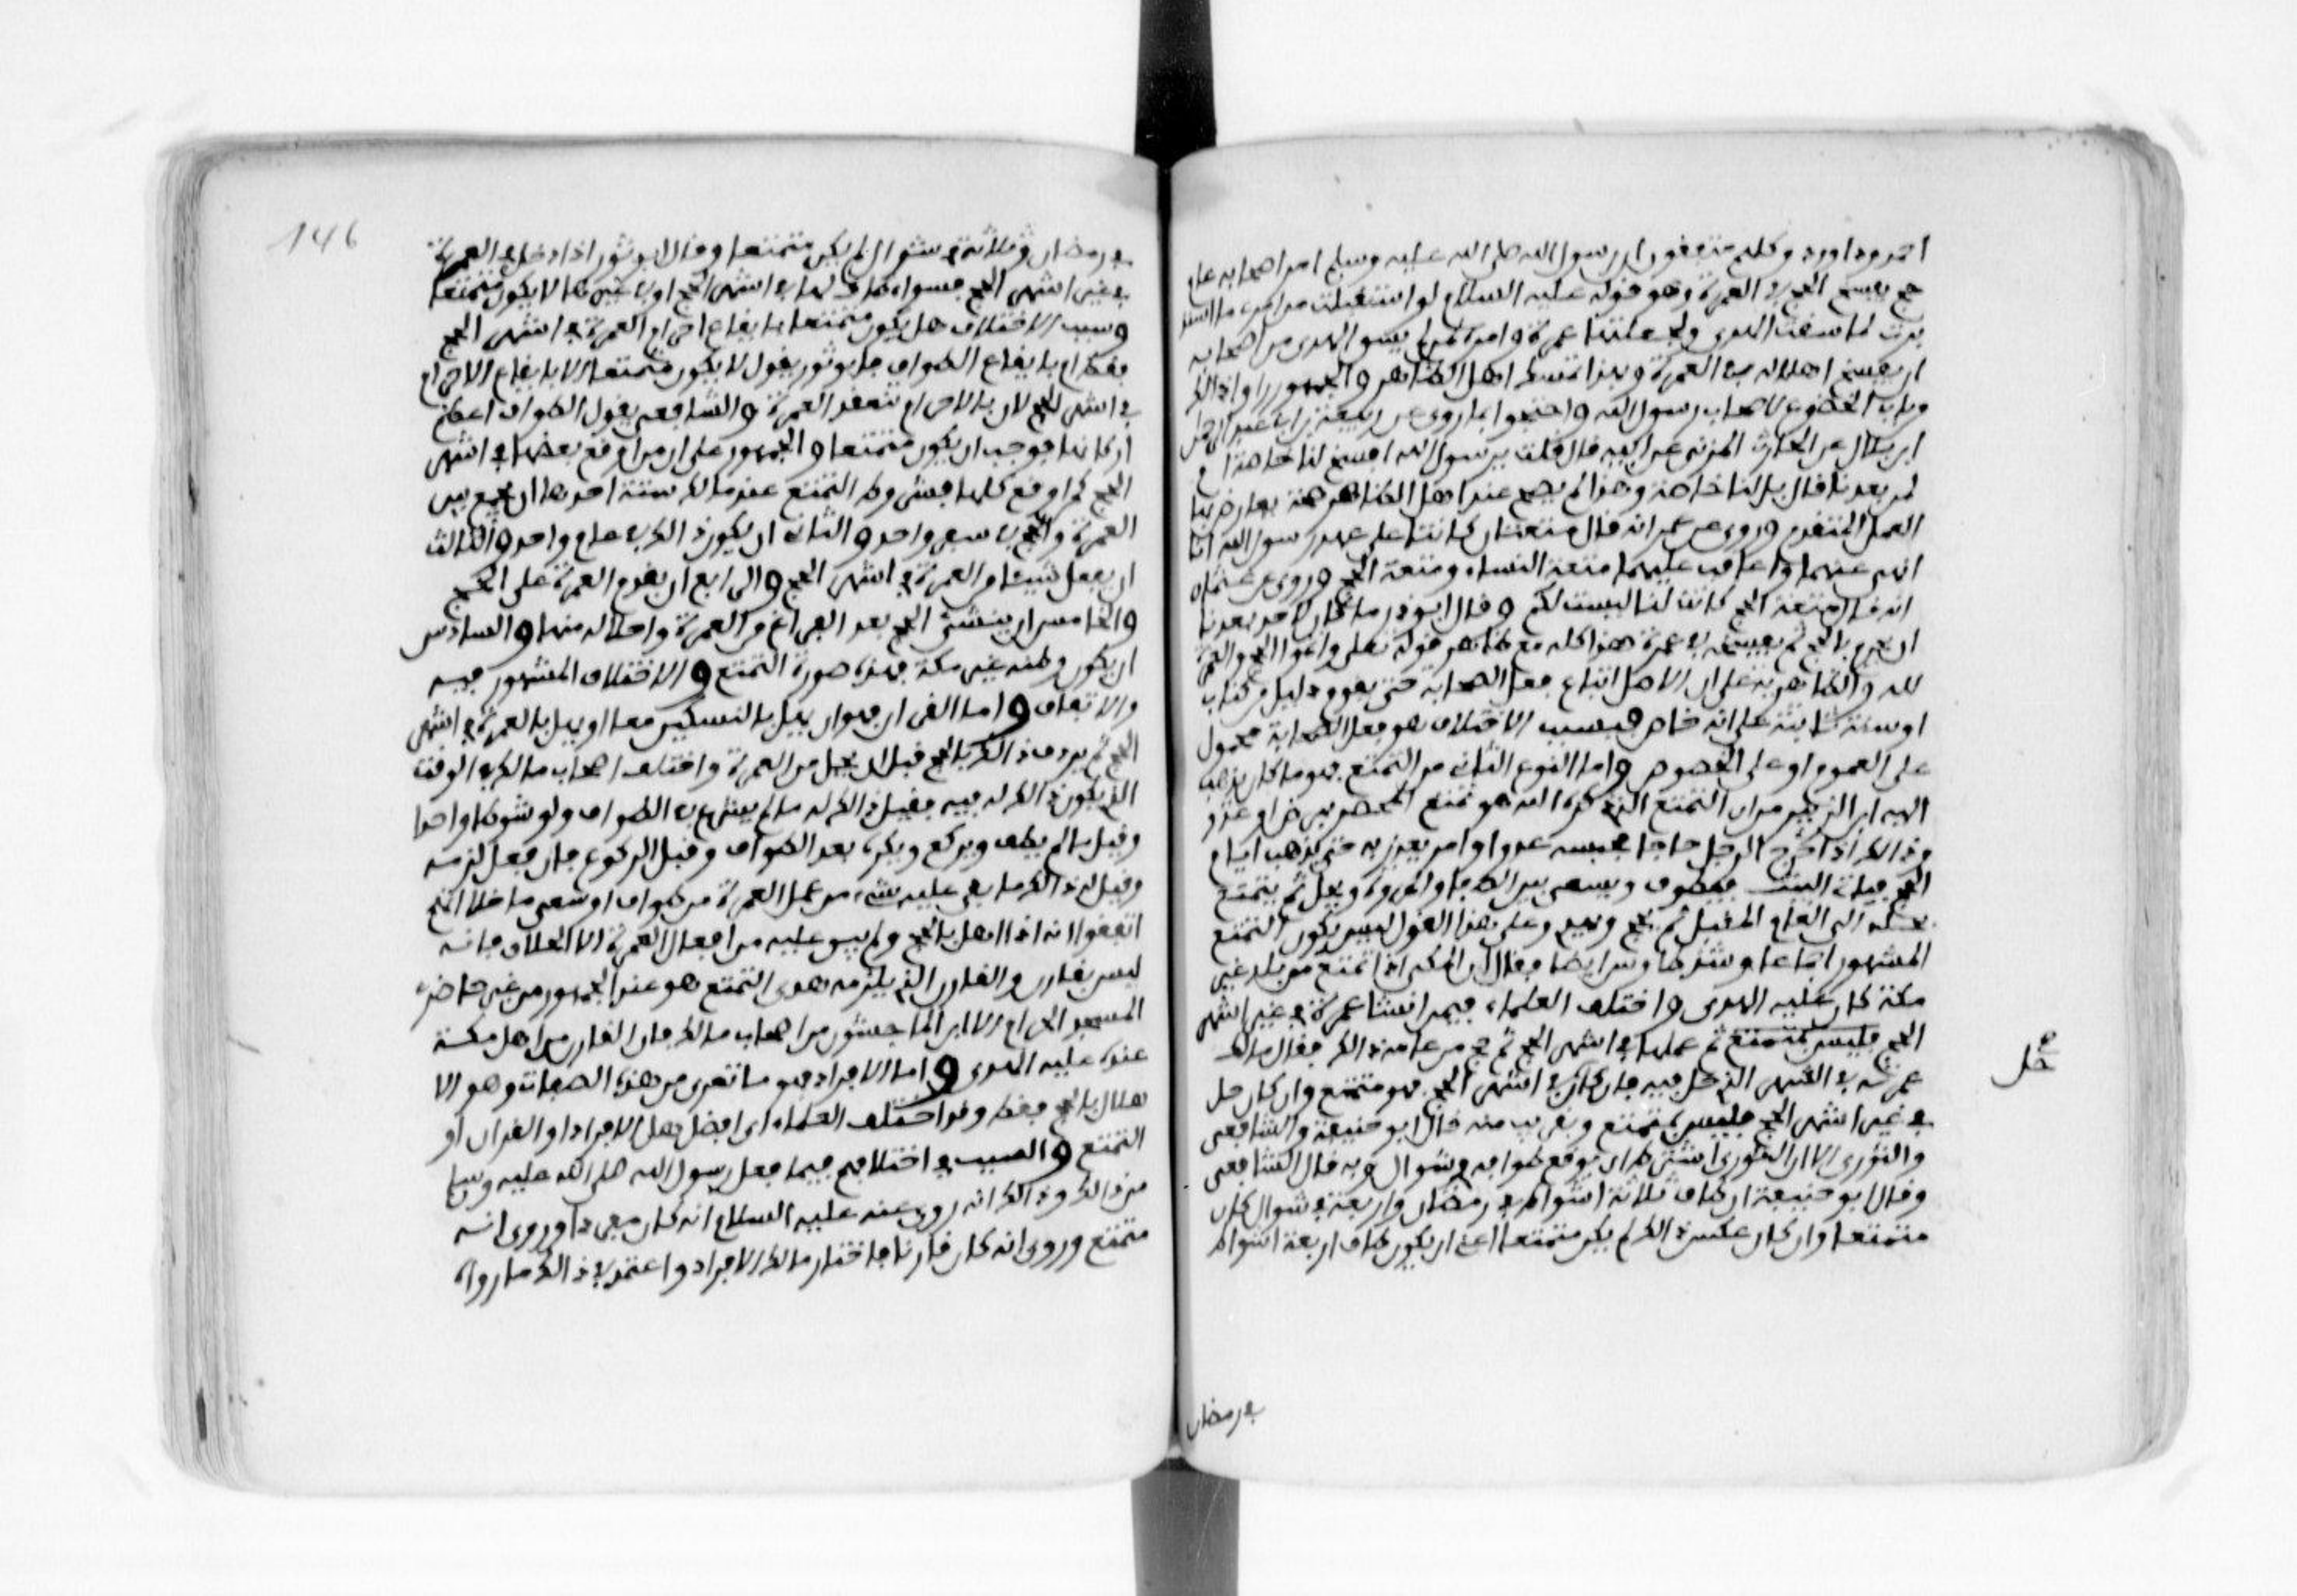 احمد وداود وكلهم متفقون ان رسول الله صلى الله عليه وسلم امر اصحابه عام
حج بفسخ الحج في العمرة وهو قوله عليه السلام لو استقبلت من امري ما استد
برت لما سقت الهدي ولجعلتها عمرة وامره لمن لم يسق الهدي من اصحابه
ان يفسخ اهلاله في العمرة وبهذا تمسك اهل الظاهر والجمهور راوا ذلك
من باب الخصوص لاصحاب رسول الله واحتجوا بما روي عن ربيعة بن ابي عبد الرحمن
ابن بلال عن الحارث المزني عن ابيه قال قلت يرسول الله افسخ لنا خاصة ام
لمن بعدنا قال بل لنا خاصة وهذا لم يصح عند اهل الظاهر صحة يعارض بها
العمل المتقدم وروي عن عمر انه قال متعتان كانتا على عهد رسول الله انا
انهى عنهما واعاقب عليهما متعة النساء ومتعة الحج وروي عن عثمان
انه قال متعة الحج كانت لنا ليست لكم وقال ابو ذر ما كان لاحد بعدنا
ان يحرم بالحج ثم يفسخه في عمرة هذا كله مع ظاهر قوله تعلى واتموا الحج والعمرة
لله والظاهرية على ان الاصل اتباع فعل الصحابة حتى يقوم دليل من كتاب
او سنة ثابتة على انه خاص فسبب الاختلاف هو فعل الصحابة محمول
على العموم او على الخصوص واما النوع الثاني من التمتع فهو ما كان يذهب
اليه ابن الزبير من ان التمتع الذي ذكره الله هو تمتع المحصر بمرض او عدو
وذلك اذا خرج الرجل حاجا فحبسه عدو او امر يعذر به حتى تذهب ايام
الحج فياتي البيت فيطوف ويسعى بين الصفا والمروة ويحل ثم يتمتع
بحله الى العام المقبل ثم يحج ويهدي وعلى هذا القول ليس يكون التمتع
المشهور اجماعا وشذ طاوس ايضا فقال ان المكي اذا تمتع من بلد غير
مكة كان عليه الهدي واختلف العلماء فيمن انشا عمرة في غير اشهر
الحج فليس بمتمتع ثم عملها في اشهر الحج ثم حج من عامه ذلك فقال مالك
عمرته في الشهر الذي حل فيه فان كان في اشهر الحج فهو متمتع وان كان حل
في غير اشهر الحج فليس بمتمتع وبقريب منه قال ابو حنيفة والشافعي
والثوري الا ان الثوري اشترط ان يوقع طوافه في شوال وبه قال الشافعي
وقال ابو حنيفة ان طاف ثلاثة اشواط في رمضان واربعة في شوال كان
متمتعا وان كان عكس ذلك لم يكن متمتعا اعني ان يكون طاف اربعة اشواط
في رمضان
146
في رمضان وثلاثة في شوال لم يكن متمتعا وقال ابو ثور اذا دخل في العمرة
في غير اشهر الحج فسواء طاف لها في اشهر الحج او في غيرها لا يكون متمتعا
وسبب الاختلاف هل يكون متمتعا بايقاع احرام العمرة في اشهر الحج
فقط ام بايقاع الطواف فابو ثور يقول لا يكون متمتعا الا بايقاع الاحرام
في اشهر الحج لان بالاحرام تنعقد العمرة والشافعي يقول الطواف اعظم
اركانها فوجب ان يكون متمتعا والجمهور على ان من اوقع بعضها في اشهر
الحج كمن اوقع كلها فشروط التمتع عند مالك ستة احدها ان يجمع بين
العمرة والحج في سفر واحد والثاني ان يكون ذلك في عام واحد والثالث
ان يفعل شيئا من العمرة في اشهر الحج والرابع ان يقدم العمرة على الحج
والخامس ان ينشئ الحج بعد الفراغ من العمرة واحلاله منها والسادس
ان يكون وطنه غير مكة فهذه صورة التمتع والاختلاف المشهور فيه
والاتفاق واما القران فهو ان يهل بالنسكين معا او يهل بالعمرة في اشهر
الحج ثم يردف ذلك بالحج قبل ان يحل من العمرة واختلف اصحاب مالك في الوقت
الذي يكون ذلك له فيه فقيل ذلك له ما لم يشرع في الطواف ولو شوطا واحدا
وقيل ما لم يطف ويركع ويكره بعد الطواف وقبل الركوع فان فعل لزمه
وقيل له ذلك ما بقي عليه شيء من عمل العمرة من طواف او سعي ما خلا انهم
اتفقوا انه اذا اهل بالحج ولم يبق عليه من افعال العمرة الا الحلاق فانه
ليس بقارن والقارن الذي يلزمه هدي التمتع هو عند الجمهور من غير حاضري
المسجد الحرام الا ابن الماجشون من اصحاب مالك فان القارن من اهل مكة
عنده عليه الهدي واما الافراد فهو ما تعرى من هذه الصفات وهو الا
هلال بالحج فقط وقد اختلف العلماء اي افضل هل الافراد او القران او
التمتع والسبب في اختلافهم فيما فعل رسول الله صلى الله عليه وسلم
من ذلك وذلك انه روي عنه عليه السلام انه كان مفردا وروي انه
متمتع وروي انه كان قارنا فاختار مالك الافراد واعتمد في ذلك ما رواه